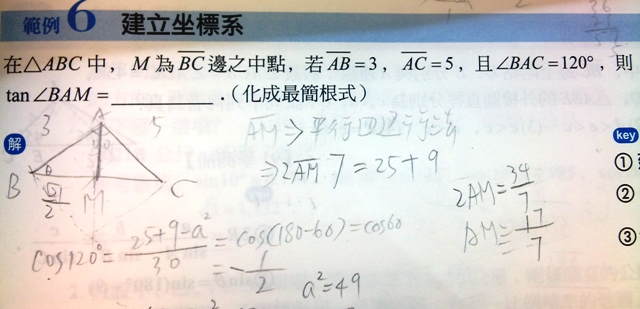 範例 6 建立坐標系
在△ABC 中，M 為 BC 邊之中點，若 AB = 3，AC = 5，且∠BAC = 120°，則
tan ∠BAM = ________ .（化成最簡根式）
解
key
①
②
③
A
3
5
B
M
C
AM ⇒ 平行四邊形
⇒ 2AM 7 = 25 + 9
2AM = 34/7
AM = 17/7
cos120° = (25+9-a²)/30 = cos(180-60) = cos60
= -1/2
a² = 49